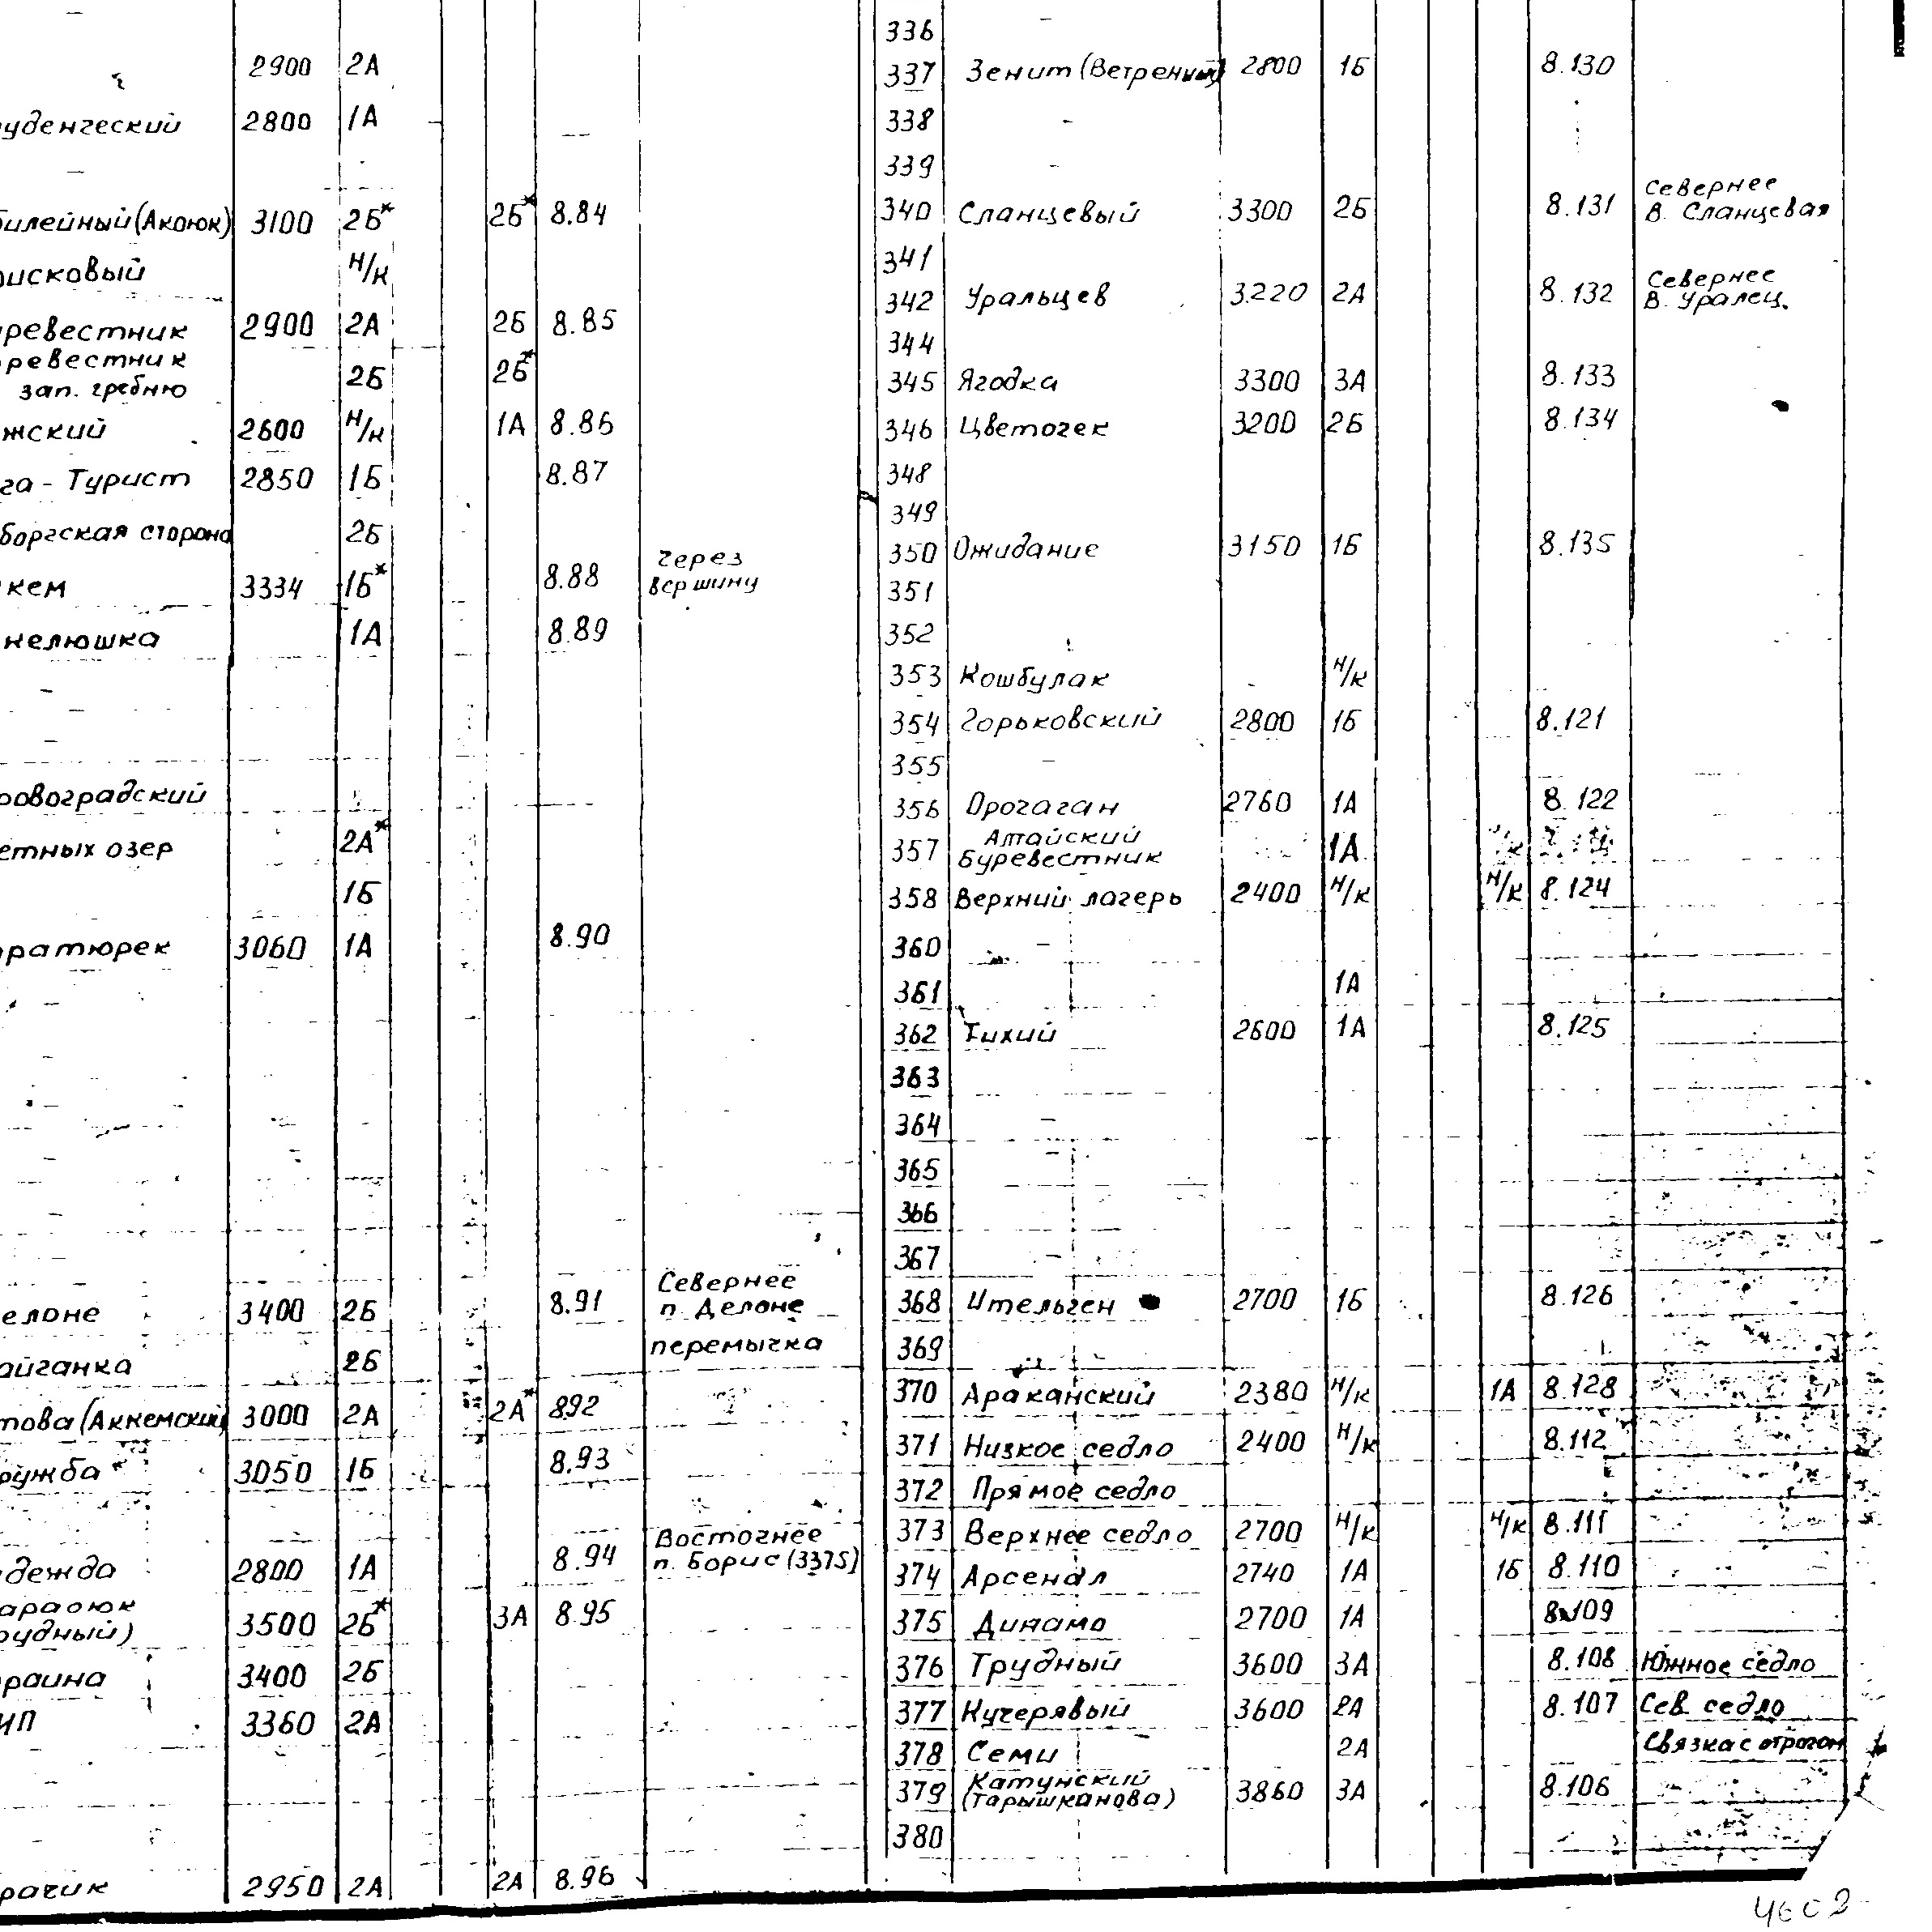 2900 2А
уденческий 2800 1А
билейный (Акоюк) 3100 2Б* 2Б* 8.84
оисковый н/к
уревестник 2900 2А 2Б 8.85
уревестник
зап. гребню 2Б 2Б*
жский 2600 н/к 1А 8.86
га - Турист 2850 1Б 8.87
боргская сторона 2Б
кем 3334 1Б* 8.88 через
вершину
нелюшка 1А 8.89
ровоградский
етных озер 2А*
1Б
ратюрек 3060 1А 8.90
елоне 3400 2Б 8.91 Севернее
п. Делоне
айганка 2Б перемычка
това (Аккемский) 3000 2А 2А* 892
ружба 3050 1Б 8.93
дежда 2800 1А 8.94 Восточнее
п. Борис (3375)
араоюк
рудный) 3500 2Б* 3А 8.95
раина 3400 2Б
ИП 3360 2А
рачик 2950 2А 2А 8.96
336 -
337 Зенит (Ветреный) 2800 1Б 8.130
338 -
339 -
340 Сланцевый 3300 2Б 8.131 Севернее
В. Сланцевая
341
342 Уральцев 3220 2А 8.132 Севернее
В. Уралец.
344
345 Ягодка 3300 3А 8.133
346 Цветочек 3200 2Б 8.134
348
349
350 Ожидание 3150 1Б 8.135
351
352
353 Кошбулак - н/к
354 Горьковский 2800 1Б 8.121
355 -
356 Орочаган 2760 1А 8.122
357 Алтайский
Буревестник 1А
358 Верхний лагерь 2400 н/к н/к 8.124
360 -
361 1А
362 Тихий 2600 1А 8.125
363
364 -
365
366
367 -
368 Ительген 2700 1Б 8.126
369
370 Араканский 2380 н/к 1А 8.128
371 Низкое седло 2400 н/к 8.112
372 Прямое седло
373 Верхнее седло 2700 н/к н/к 8.111
374 Арсенал 2740 1А 1Б 8.110
375 Динамо 2700 1А 8.109
376 Трудный 3600 3А 8.108 Южное седло
377 Кучерявый 3600 2А 8.107 Сев. седло
378 Семи 2А Связка с отрогом
379 Катунский
(Тарышканова) 3860 3А 8.106
380